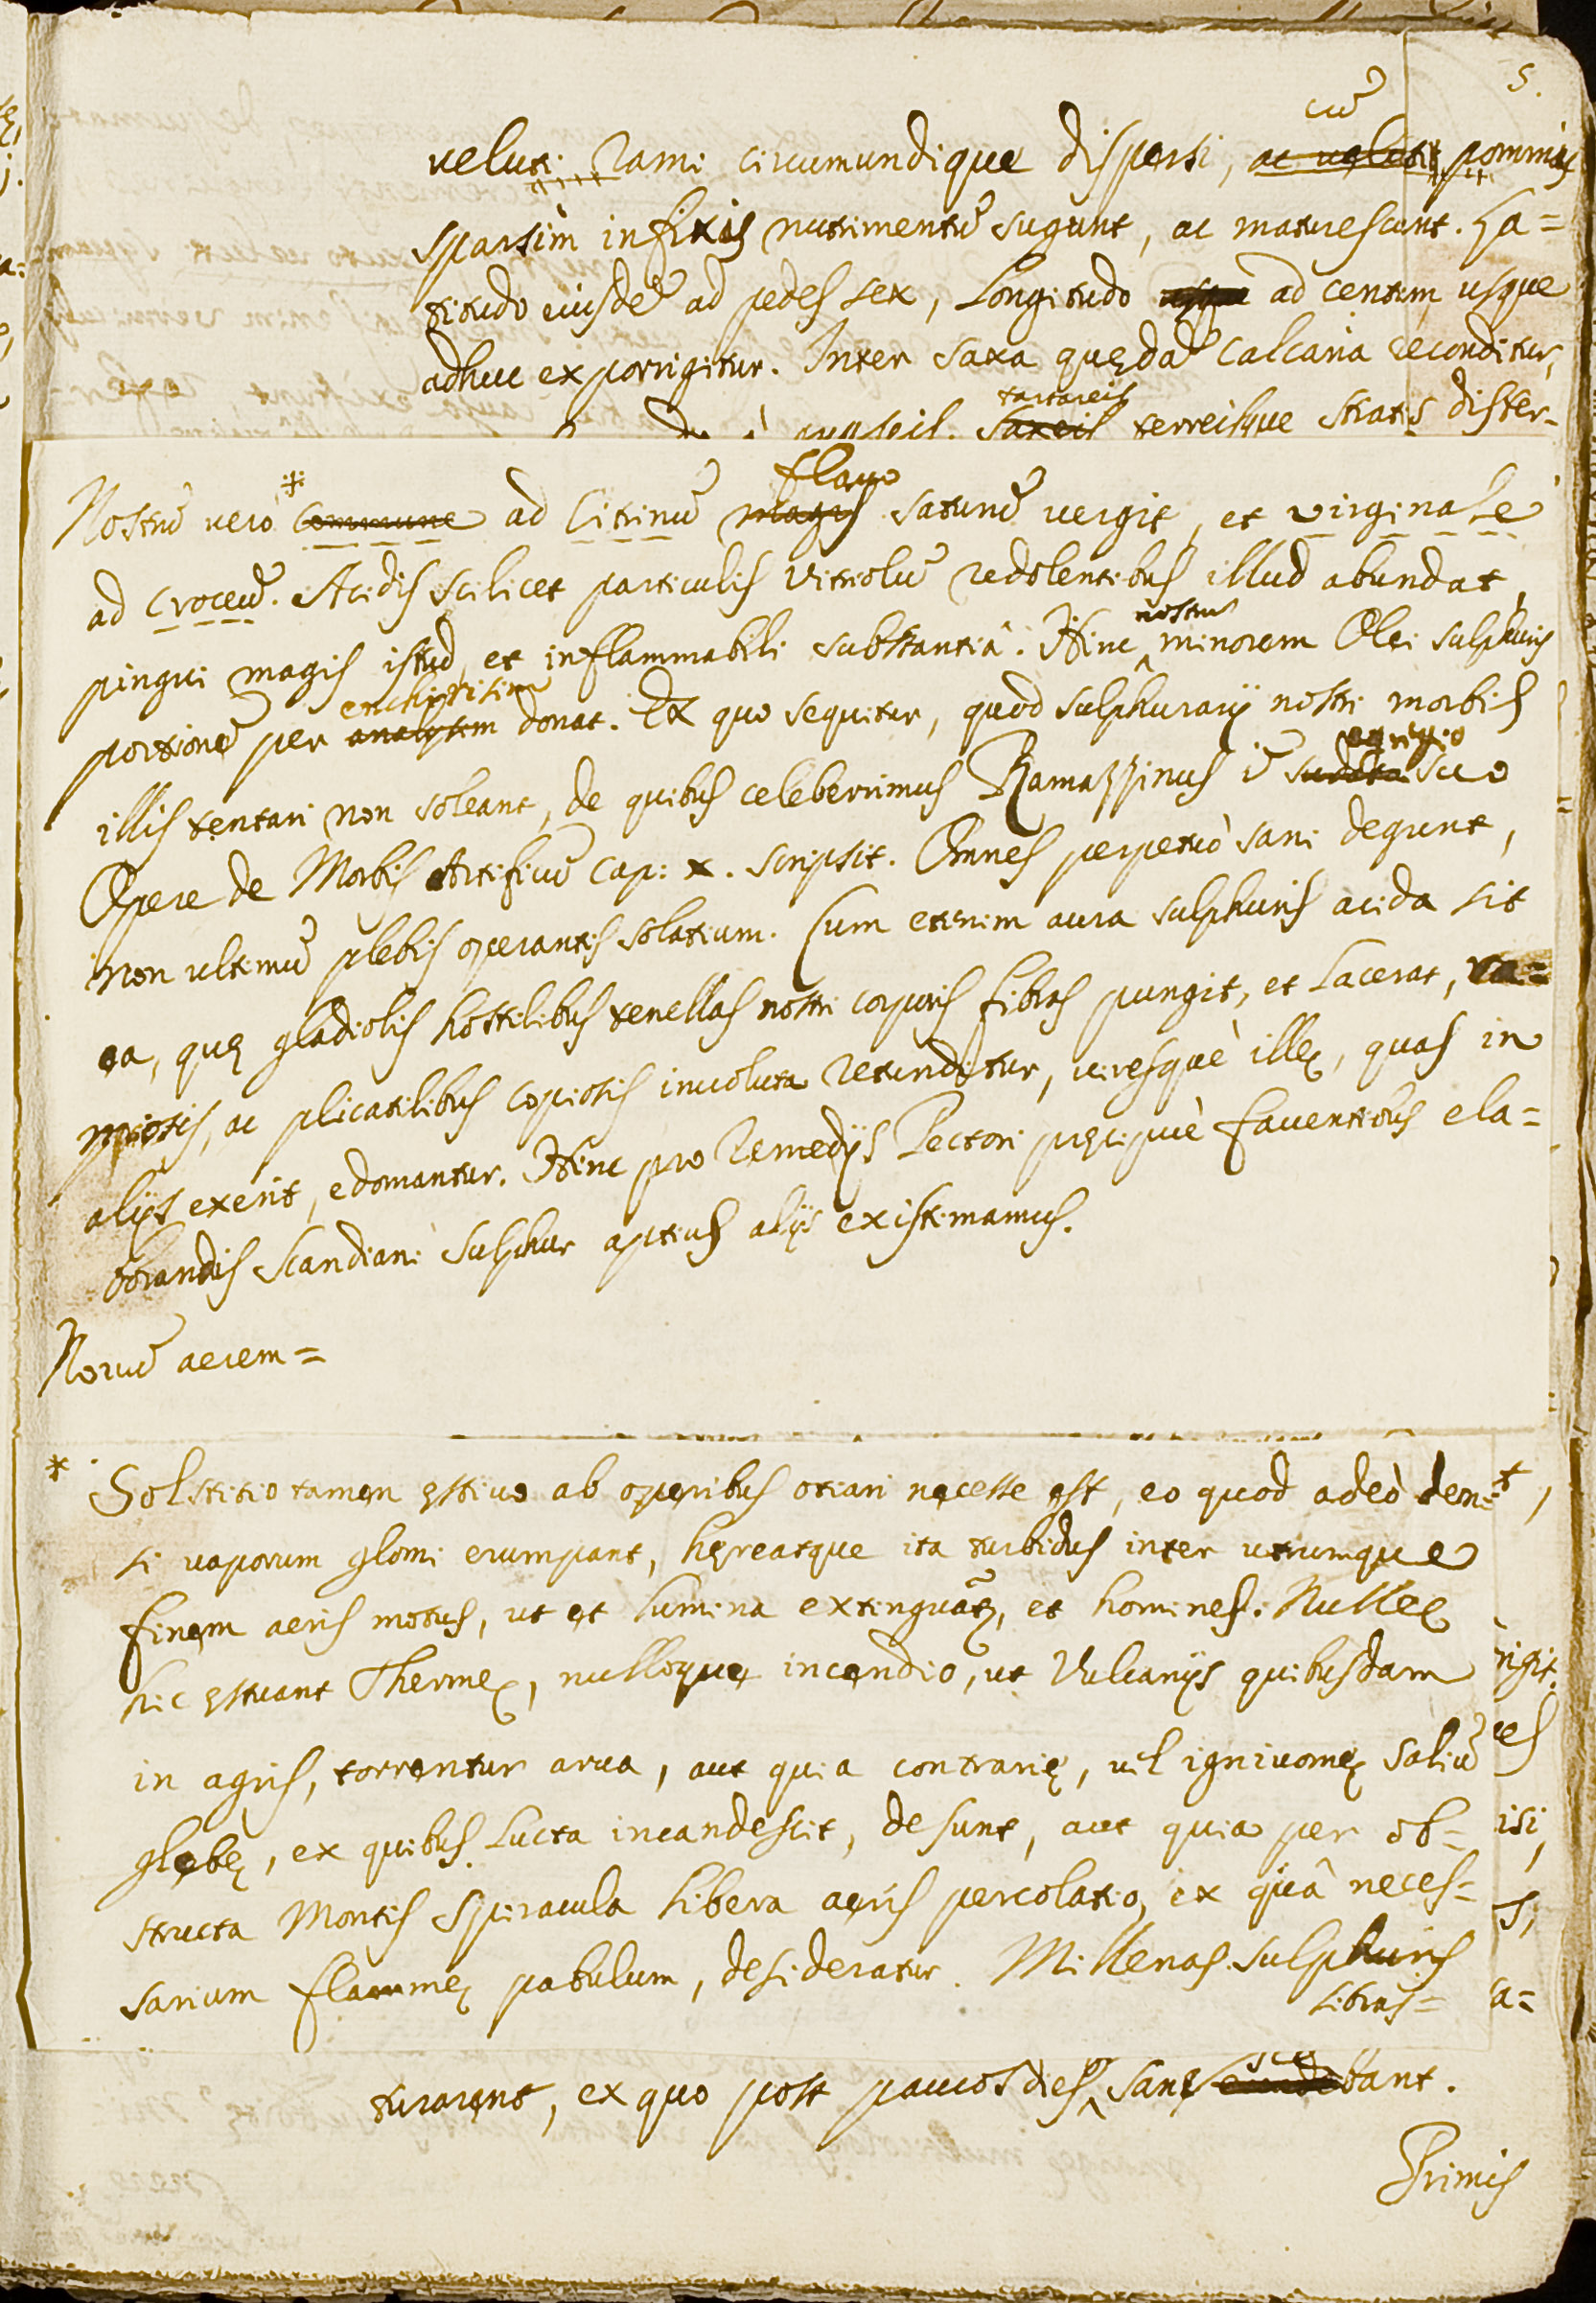 5.
cū
veluti rami circumundique dispersi, ac veluti pommis
sparsìm infixis nutrimentū sugunt, ac maturescunt. La=
titudo eiusdē ad pedes sex, Longitudo usque ad centum usque
adhuc exporrigitur. Inter saxa quędā calcaria reconditur,
tartareis
saxeis terreisque stratis dister-
flavo
Nostrū verò * Commune ad Citrinū magis saturū vergit, et virginale
ad Croceū. Acidis scilicet particulis vitriolū redolentibus illud abundat,
nostrū
pingui magis istud, et inflammabili substantiâ. Hinc ^ minorem Olei sulphuris
enchirisim
portionē per analysim donat. Ex quo sequitur, quòd sulphurarij nostri morbis
egregio
illis tentari non soleant, de quibus celeberrimus Ramazzinus ī suo
Opere de Morbis Artificū Cap: x. scripsit. Omnes perpetuò sani degunt,
non ultimū plebis operantis solatium. Cum etenim aura sulphuris acida sit
ea, quę gladiolis hostilibus tenellas nostri corporis fibras pungit, et lacerat, ra=
mosis, ac plicatilibus copiosis involuta retunditur, viresquè illę, quas in
alijs exerit, edomantur. Hinc pro Remedijs Pectori pręcipuè faventibus ela=
borandis Scandiani sulphur aptius alijs existimamus.
Novū aerem=
* Solstitio tamen ęstivo ab operibus otiari necesse est, eo quod adeò den=
si vaporum glomi erumpant, hęreatque ita turbidus inter utrumque
finem aeris motus, ut et lumina extinguāt, et homines. Nullę
hic ęstuant Thermę, nulloque incendio, ut Vulcanijs quibusdam
in agris, torrentur arva, aut quia contrarię, vel ignivomę saliū
glebę, ex quibus lucta incandescit, desunt, aut quia per ob=
structa Montis spiracula libera aeris percolatio, ex quâ neces=
sarium flammę pabulum, desideratur. Millenas sulphuris
libras=
t,
rigit.
es
isi,
s,
a=
turarent, ex quo post paucos dies ^ sanę bant.
Primis